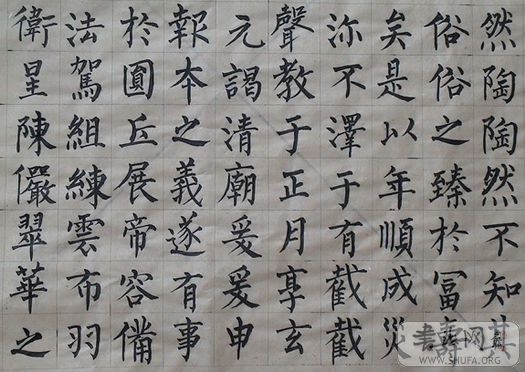 然陶陶然不知其
俗俗之臻於冨
矣是以年順成災
沵不澤于有截截
聲教于正月享玄
元謁清廟爰爰申
報本之義遂有事
於圓丘展帝容備
法駕組練雲布羽
衛星陳儼翠華之
WWW.SHUFA.ORG